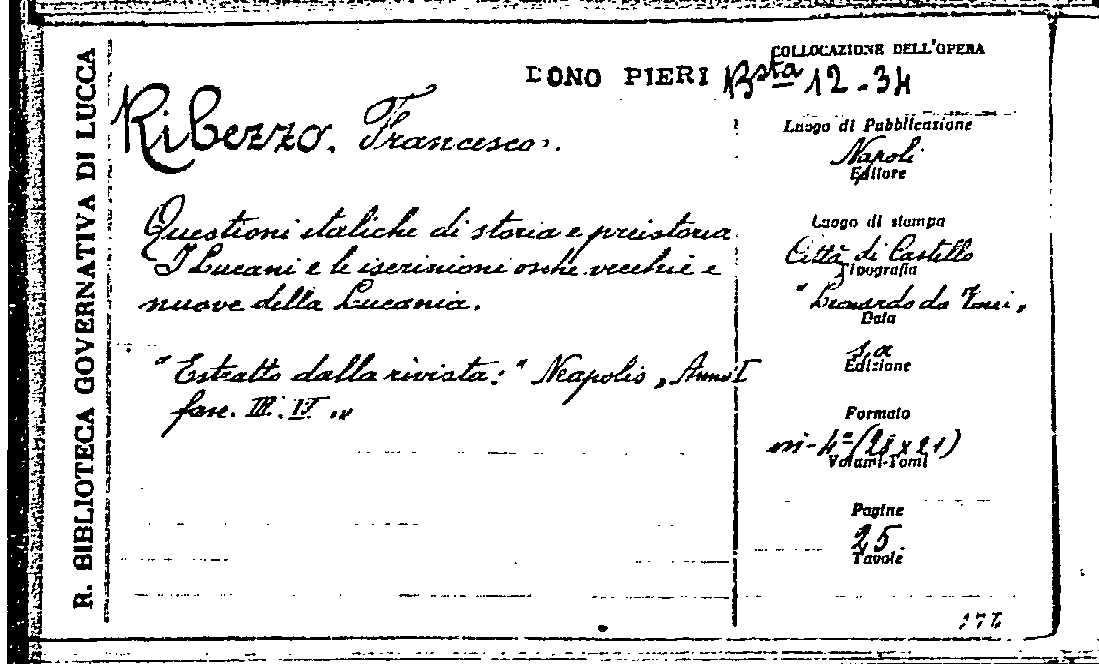 R. BIBLIOTECA GOVERNATIVA DI LUCCA
COLLOCAZIONE DELL'OPERA
DONO PIERI Bsta 12-34
Ribezzo. Francesco.
Questioni italiche di storia e preistoria
I Lucani e le iscrizioni osche vecchie e
nuove della Lucania.
"Estratto dalla rivista: "Neapolis„ Anno I
fasc. III. IV.„
Luogo di Pubblicazione
Napoli
Editore
Luogo di stampa
Città di Castello
Tipografia
"Leonardo da Vinci„
Data
s.a
Edizione
Formato
in-4º
Volumi-Tomi
Pagine
25
Tavole